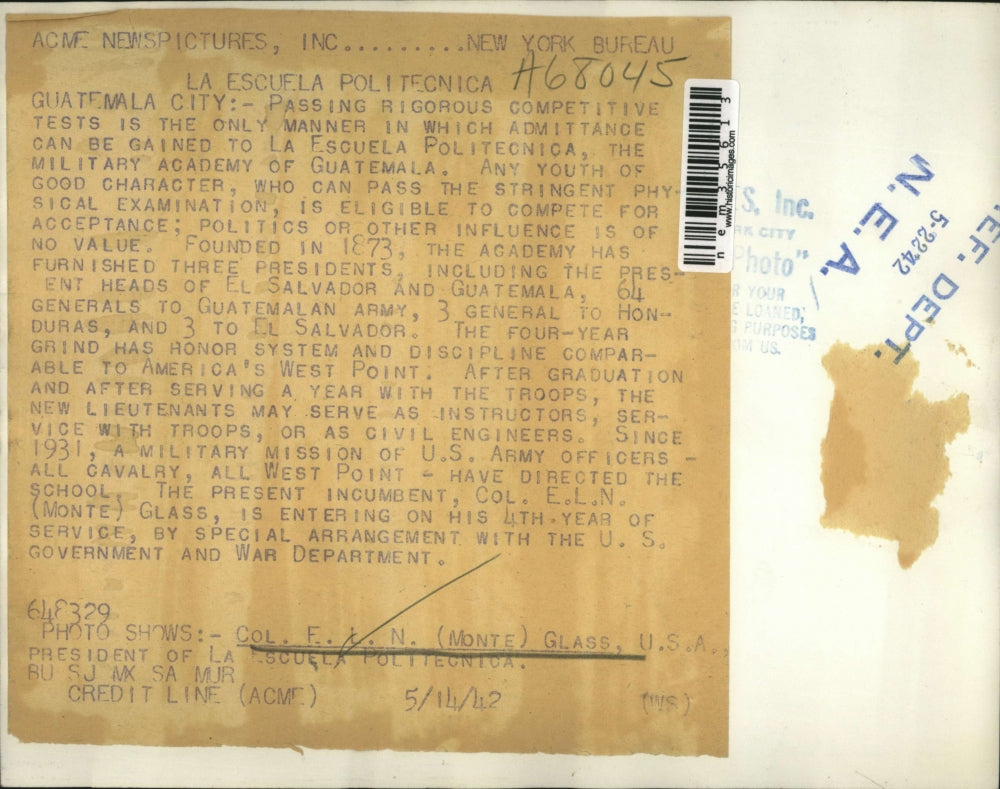 ACME NEWSPICTURES, INC..........NEW YORK BUREAU
A68045
LA ESCUELA POLITECNICA
GUATEMALA CITY:- PASSING RIGOROUS COMPETITIVE
TESTS IS THE ONLY MANNER IN WHICH ADMITTANCE
CAN BE GAINED TO LA ESCUELA POLITECNICA, THE
MILITARY ACADEMY OF GUATEMALA. ANY YOUTH OF
GOOD CHARACTER, WHO CAN PASS THE STRINGENT PHY-
SICAL EXAMINATION, IS ELIGIBLE TO COMPETE FOR
ACCEPTANCE; POLITICS OR OTHER INFLUENCE IS OF
NO VALUE. FOUNDED IN 1873, THE ACADEMY HAS
FURNISHED THREE PRESIDENTS, INCLUDING THE PRES-
ENT HEADS OF EL SALVADOR AND GUATEMALA, 64
GENERALS TO GUATEMALAN ARMY, 3 GENERAL TO HON-
DURAS, AND 3 TO EL SALVADOR. THE FOUR-YEAR
GRIND HAS HONOR SYSTEM AND DISCIPLINE COMPAR-
ABLE TO AMERICA'S WEST POINT. AFTER GRADUATION
AND AFTER SERVING A YEAR WITH THE TROOPS, THE
NEW LIEUTENANTS MAY SERVE AS INSTRUCTORS, SER-
VICE WITH TROOPS, OR AS CIVIL ENGINEERS. SINCE
1931, A MILITARY MISSION OF U.S. ARMY OFFICERS -
ALL CAVALRY, ALL WEST POINT - HAVE DIRECTED THE
SCHOOL. THE PRESENT INCUMBENT, COL. E.L.N.
(MONTE) GLASS, IS ENTERING ON HIS 4TH YEAR OF
SERVICE, BY SPECIAL ARRANGEMENT WITH THE U. S.
GOVERNMENT AND WAR DEPARTMENT.
648329
PHOTO SHOWS:- COL. E. L. N. (MONTE) GLASS, U.S.A.,
PRESIDENT OF LA ESCUELA POLITECNICA.
BU SJ MX SA MUR
CREDIT LINE (ACME) 5/14/42 (WS)
nem35613
www.historicimages.com
S, Inc.
RK CITY
Photo"
R YOUR
E LOANED,
G PURPOSES
OM US.
N. E. A.
5-2242
EF. DEPT.